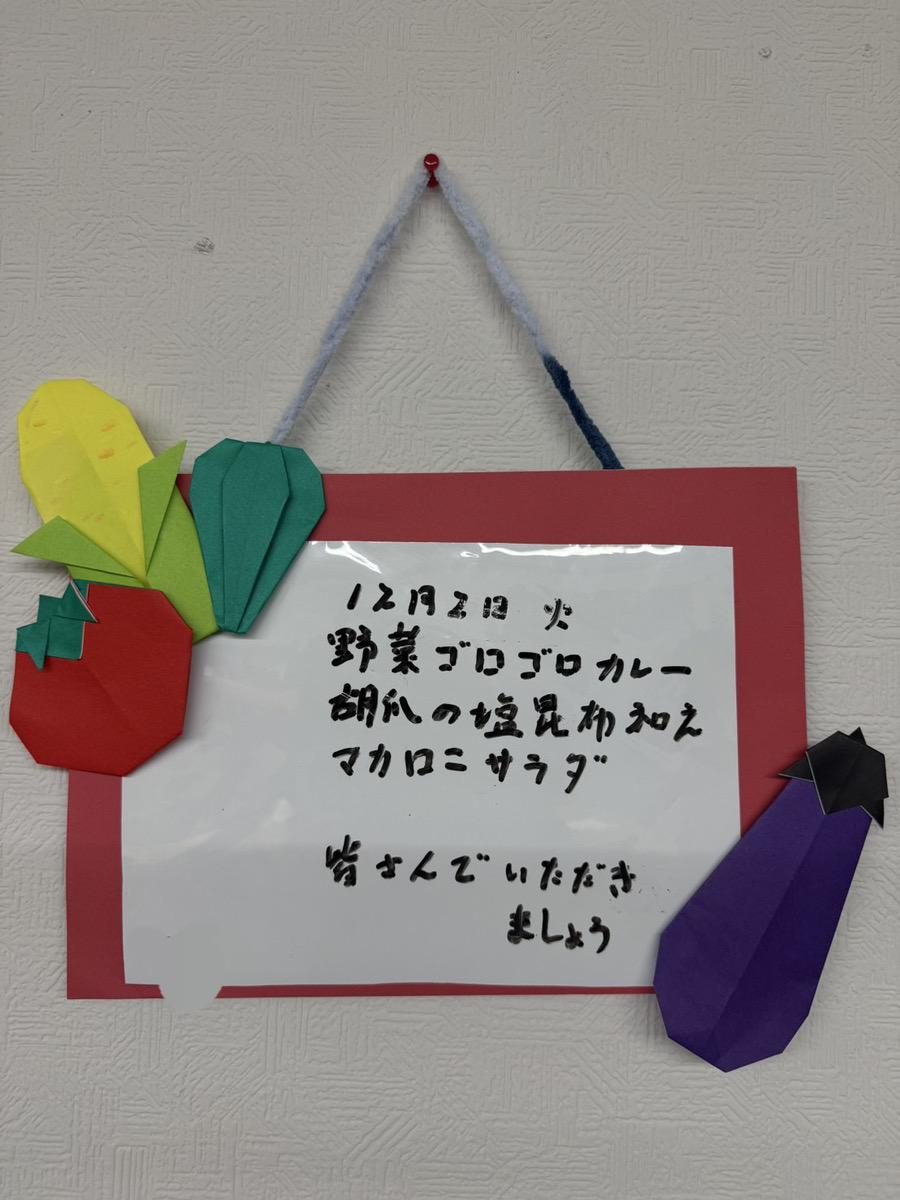 12月2日 火
野菜ゴロゴロカレー
胡瓜の塩昆布和え
マカロニサラダ
皆さんでいただき
ましょう